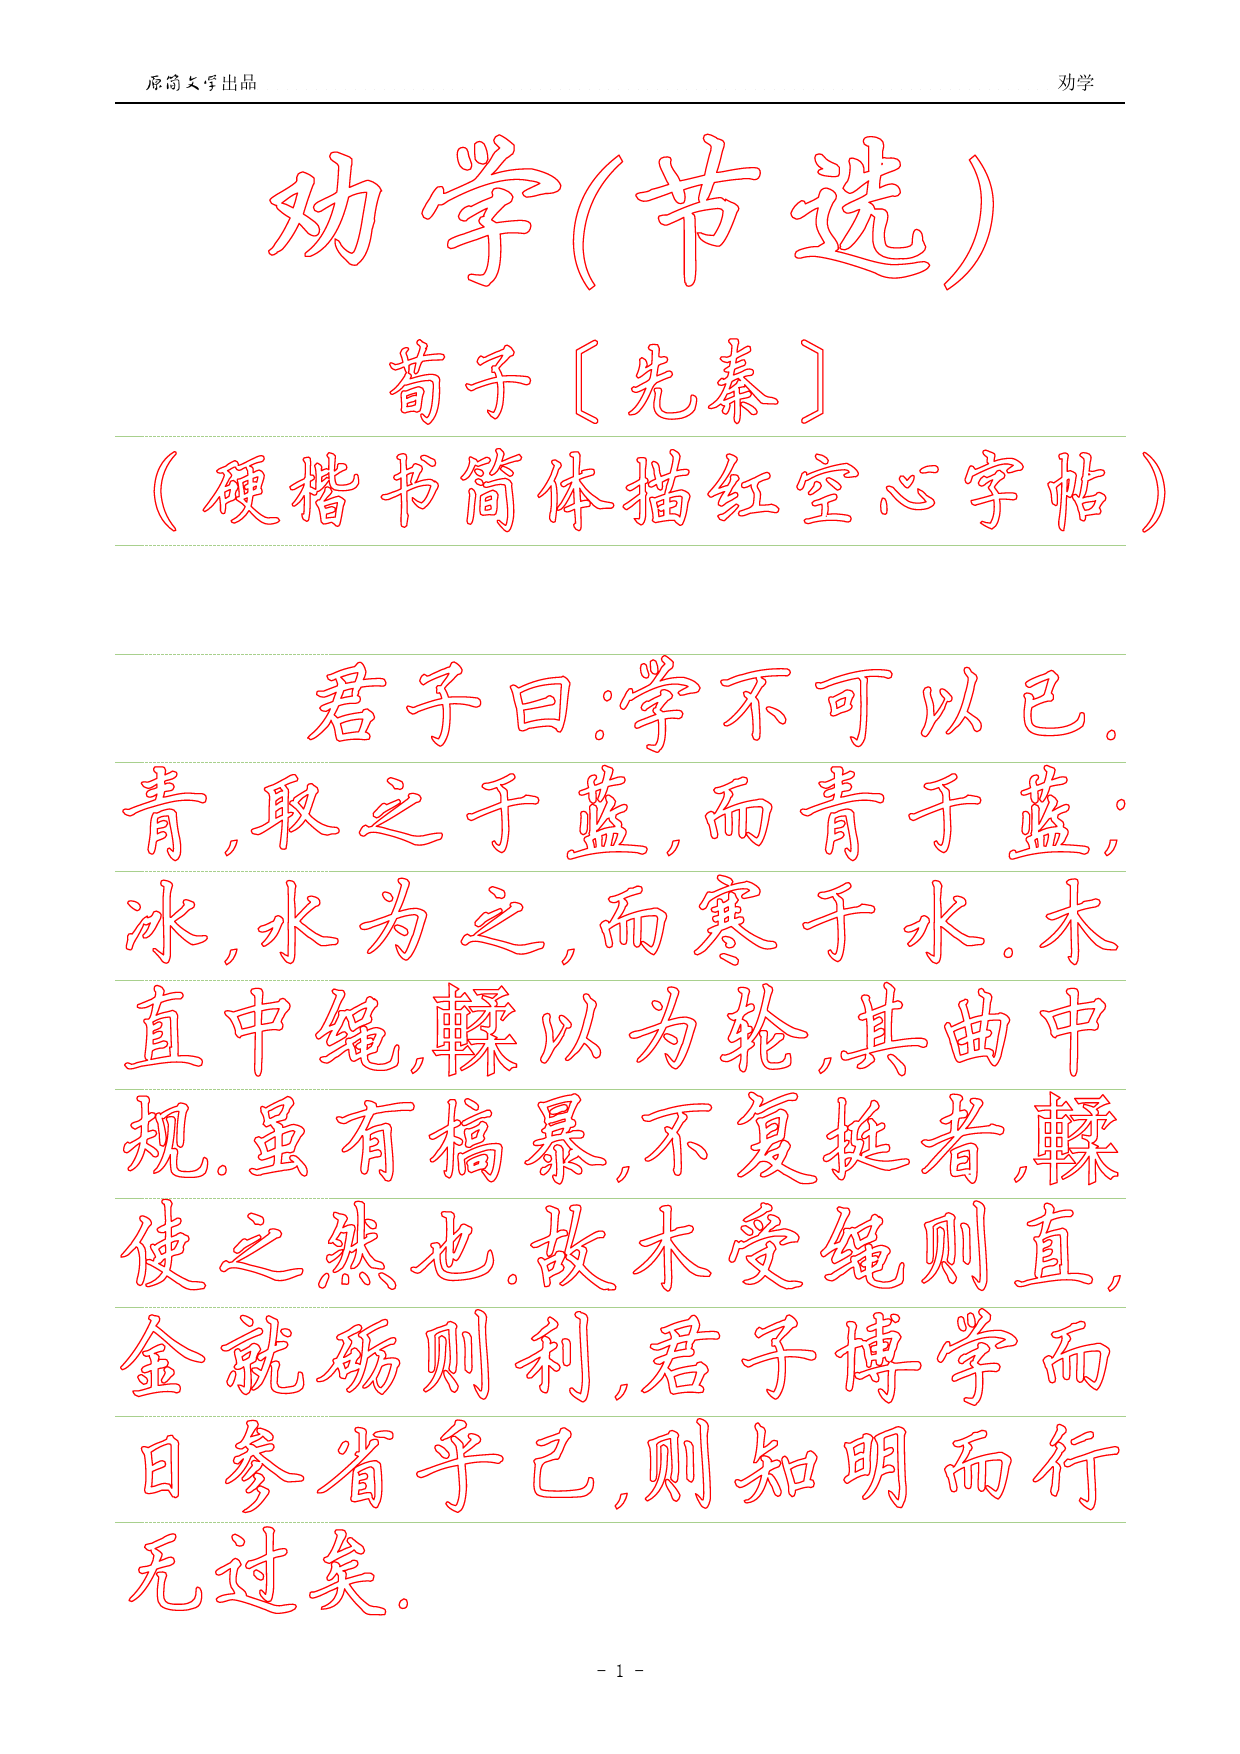 原简文学出品 劝学
劝学(节选)
荀子〔先秦〕
(硬楷书简体描红空心字帖)
君子曰:学不可以已.
青,取之于蓝,而青于蓝;
冰,水为之,而寒于水.木
直中绳,輮以为轮,其曲中
规.虽有槁暴,不复挺者,輮
使之然也.故木受绳则直,
金就砺则利,君子博学而
日参省乎己,则知明而行
无过矣.
- 1 -